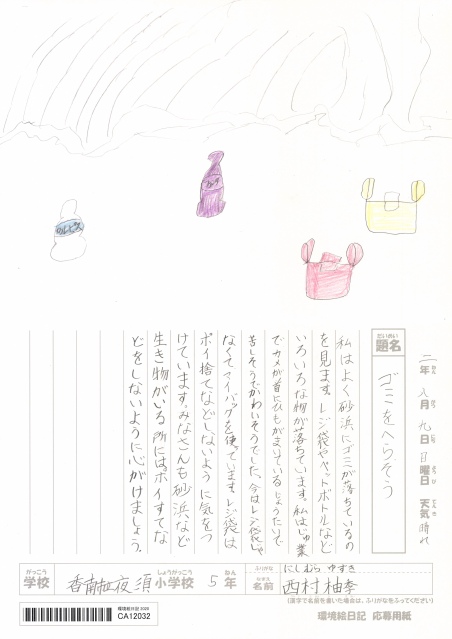 カルピス
二年八月九日日曜日 天気 晴れ
だいめい
題名
ゴミをへらそう
私はよく砂浜にゴミが落ちているの
を見ます。レジ袋やペットボトルなど
いろいろな物が落ちています。私はじゅ業
でカメが首にひもがまいているじょうたいで
苦しそうでかわいそうでした。今はレジ袋じゃ
なくてマイバッグを使っています。レジ袋は
ポイ捨てなどしないように気をつ
けています。みなさんも砂浜など
生き物がいる所にはポイすてな
どをしないように心がけましょう。
がっこう しょうがっこう ねん
学校 香南市立夜須小学校 5年
ふりがな にしむら ゆずき
なまえ
名前 西村 柚季
(漢字で名前を書いた場合は、ふりがなをふってください)
環境絵日記 2020
CA12032
環境絵日記 応募用紙